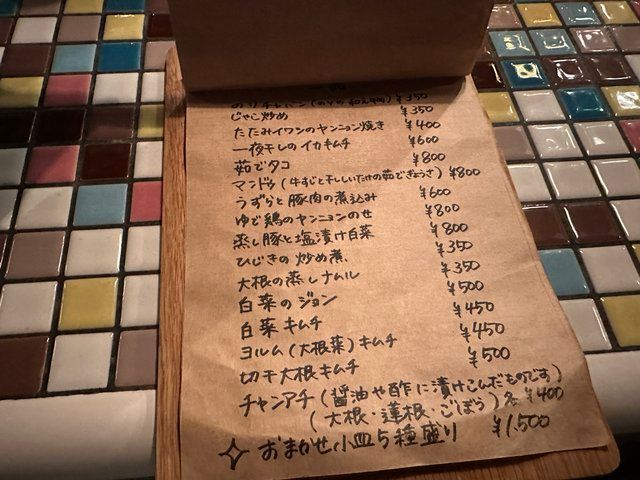 のりチャバン(のりの和え物) ¥350
じゃこ炒め ¥350
たたみイワシのヤンニョン焼き ¥400
一夜干しのイカキムチ ¥600
茹でタコ ¥800
マンドゥ(牛すじと干ししいたけの茹でぎょうざ) ¥800
うずらと豚肉の煮込み ¥600
ゆで鶏のヤンニョンのせ ¥800
蒸し豚と塩漬け白菜 ¥800
ひじきの炒め煮 ¥350
大根の蒸しナムル ¥350
白菜のジョン ¥500
白菜キムチ ¥450
ヨルム(大根菜)キムチ ¥450
切干大根キムチ ¥500
チャンアチ(醤油や酢に漬けこんだものです)
(大根・蓮根・ごぼう) 各¥400
おまかせ小皿5種盛り ¥1,500